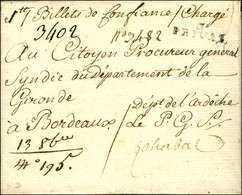 Billets de Confiance / Chargé
3402 n° 2482 PRIVAS
Au Citoyen Procureur général
Syndic du Département de la
Gironde
à Bordeaux
Dépt de l'ardêche
Le P. G. S.
13 8bre